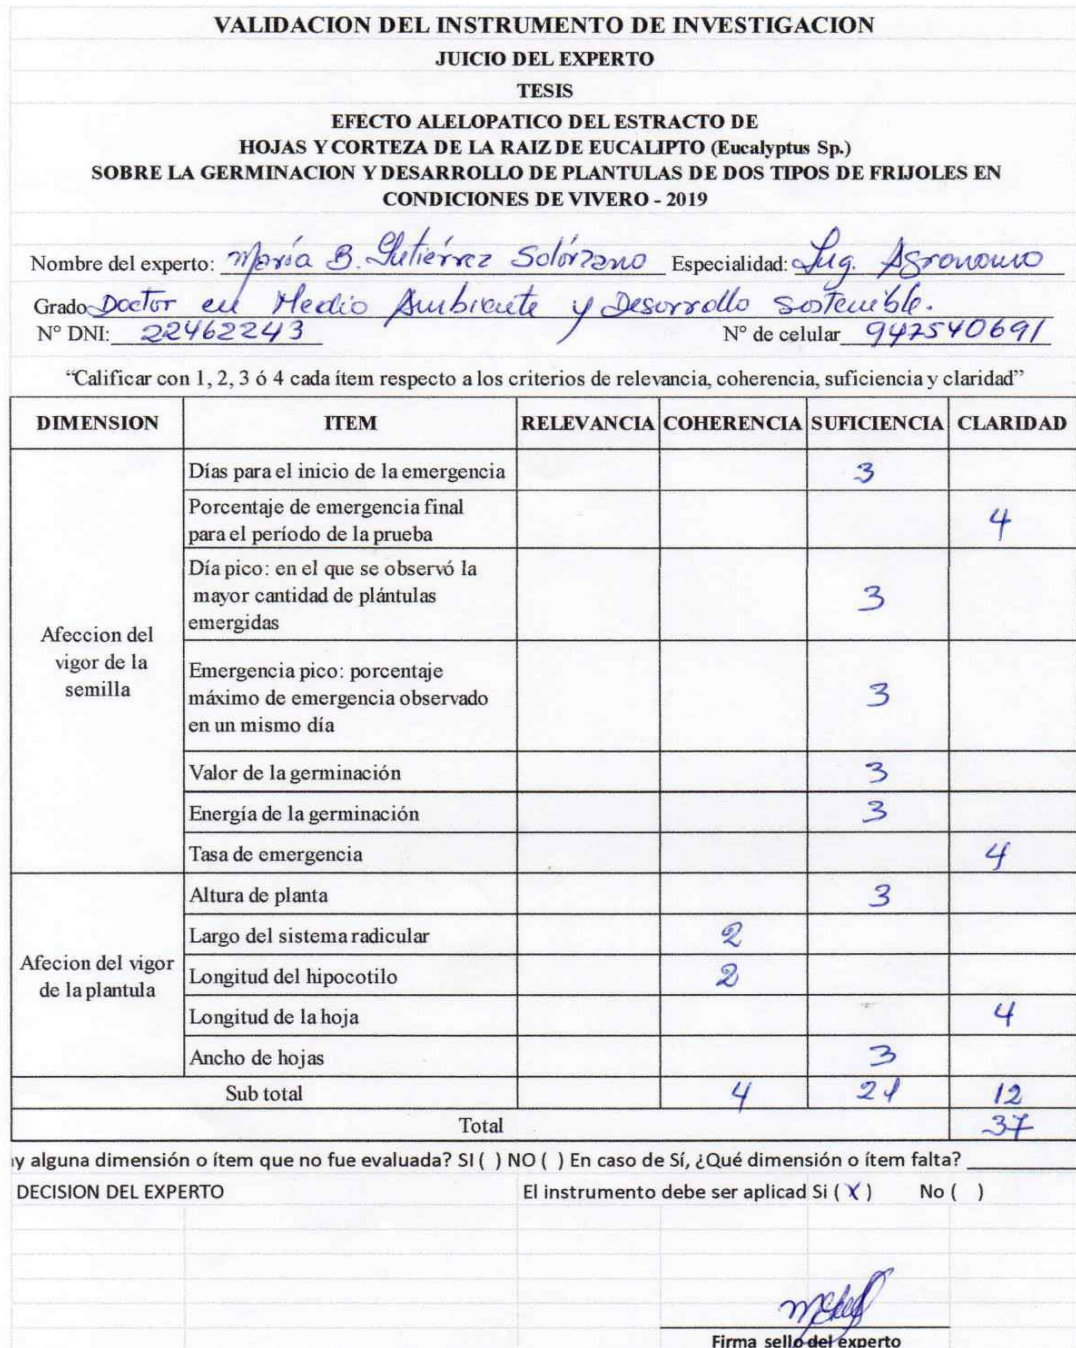 VALIDACION DEL INSTRUMENTO DE INVESTIGACION
JUICIO DEL EXPERTO
TESIS
EFECTO ALELOPATICO DEL ESTRACTO DE
HOJAS Y CORTEZA DE LA RAIZ DE EUCALIPTO (Eucalyptus Sp.)
SOBRE LA GERMINACION Y DESARROLLO DE PLANTULAS DE DOS TIPOS DE FRIJOLES EN
CONDICIONES DE VIVERO - 2019
Nombre del experto: María B. Gutiérrez Solórzano Especialidad: Ing. Agronomo
Grado Doctor en Medio Ambiente y Desarrollo Sostenible.
N° DNI: 22462243 N° de celular 947540691
“Calificar con 1, 2, 3 ó 4 cada ítem respecto a los criterios de relevancia, coherencia, suficiencia y claridad”
DIMENSION ITEM RELEVANCIA COHERENCIA SUFICIENCIA CLARIDAD
Afeccion del
vigor de la
semilla
Días para el inicio de la emergencia 3
Porcentaje de emergencia final
para el período de la prueba 4
Día pico: en el que se observó la
mayor cantidad de plántulas 3
emergidas
Emergencia pico: porcentaje
máximo de emergencia observado 3
en un mismo día
Valor de la germinación 3
Energía de la germinación 3
Tasa de emergencia 4
Afecion del vigor
de la plantula
Altura de planta 3
Largo del sistema radicular 2
Longitud del hipocotilo 2
Longitud de la hoja 4
Ancho de hojas 3
Sub total 4 21 12
Total 37
y alguna dimensión o ítem que no fue evaluada? SI ( ) NO ( ) En caso de Sí, ¿Qué dimensión o ítem falta?
DECISION DEL EXPERTO El instrumento debe ser aplicad Si ( X ) No ( )
Firma sello del experto